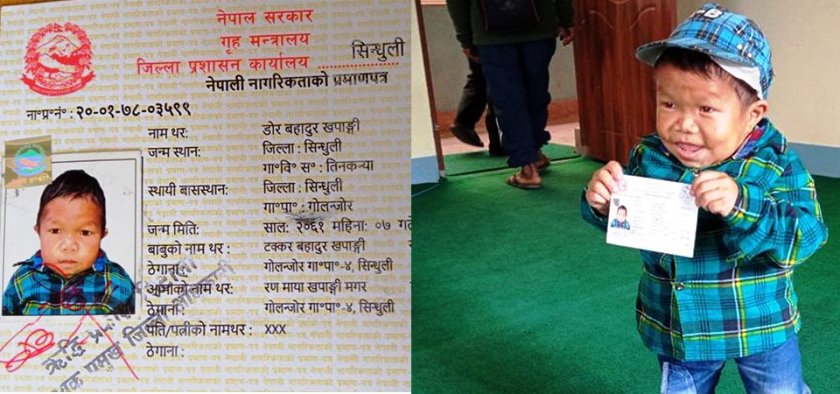 नेपाल सरकार
गृह मन्त्रालय
जिल्ला प्रशासन कार्यालय ............ सिन्धुली
नेपाली नागरिकताको प्रमाणपत्र
ना॰प्र॰नं॰ : २०-०१-७८-०३५९९
नाम थर: डोर बहादुर खपाङ्गी
जन्म स्थान: जिल्ला : सिन्धुली
गा॰वि॰ स॰ : तिनकन्या
स्थायी बासस्थान: जिल्ला : सिन्धुली
गा॰पा॰ : गोलन्जोर
जन्म मिति: साल: २०६१ महिना: ०७ गते
बाबुको नाम थर : टक्कर बहादुर खपाङ्गी
ठेगाना: गोलन्जोर गा॰पा॰-४, सिन्धुली
आमाको नाम थर: रण माया खपाङ्गी मगर
ठेगाना: गोलन्जोर गा॰पा॰-४, सिन्धुली
पति/पत्नीको नामथर : XXX
ठेगाना :
प्रमुख जिल्ला